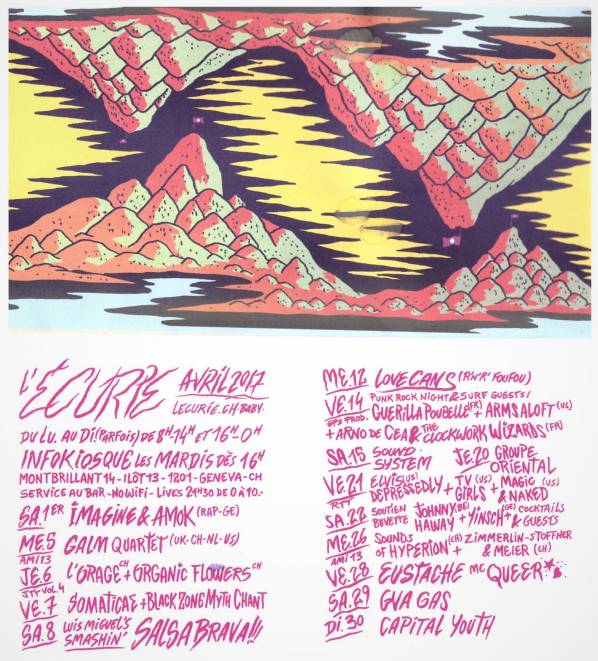 L'ÉCURIE AVRIL 2017
LECURIE.CH BABY
DU LU. AU DI (PARFOIS) DE 8H-14H ET 16H-0H
INFOKIOSQUE LES MARDIS DÈS 16H
MONTBRILLANT 14 - ILÔT 13 - 1201 - GENEVA-CH
SERVICE AU BAR - NO WIFI - LIVES 21H30 DE 0 À 10.-
SA.1ER IMAGINE & AMOK (RAP-GE)
ME.5 GALM QUARTET (UK-CH-NL-US)
AMI 13
JE.6 L'ORAGE CH + ORGANIC FLOWERS CH
JTT VOL.4
VE.7 SOMATICAE + BLACK ZONE MYTH CHANT
SA.8 LUIS MIGUEL'S SMASHIN' SALSA BRAVA!!!
ME.12 LOVE CANS (R'N'R' FOUFOU)
VE.14 PUNK ROCK NIGHT & SURF GUESTS!
GPS PROD. GUERILLA POUBELLE (FR) + ARMS ALOFT (US)
+ ARNO DE CEA & THE CLOCKWORK WIZARDS (FR)
SA.15 SOUND SYSTEM JE.20 GROUPE ORIENTAL
VE.21 ELVIS (US) DEPRESSEDLY + TV (US) GIRLS + MAGIC (US) & NAKED
RTT
SA.22 SOUTIEN BUVETTE JOHNNY (BE) HAWAY + YINSCH (GE) + COCKTAILS & GUESTS
ME.26 SOUNDS OF HYPERION (CH) + ZIMMERLIN-STOFFNER & MEIER (CH)
AMI 13
VE.28 EUSTACHE MC QUEER
SA.29 GVA GAS
DI.30 CAPITAL YOUTH